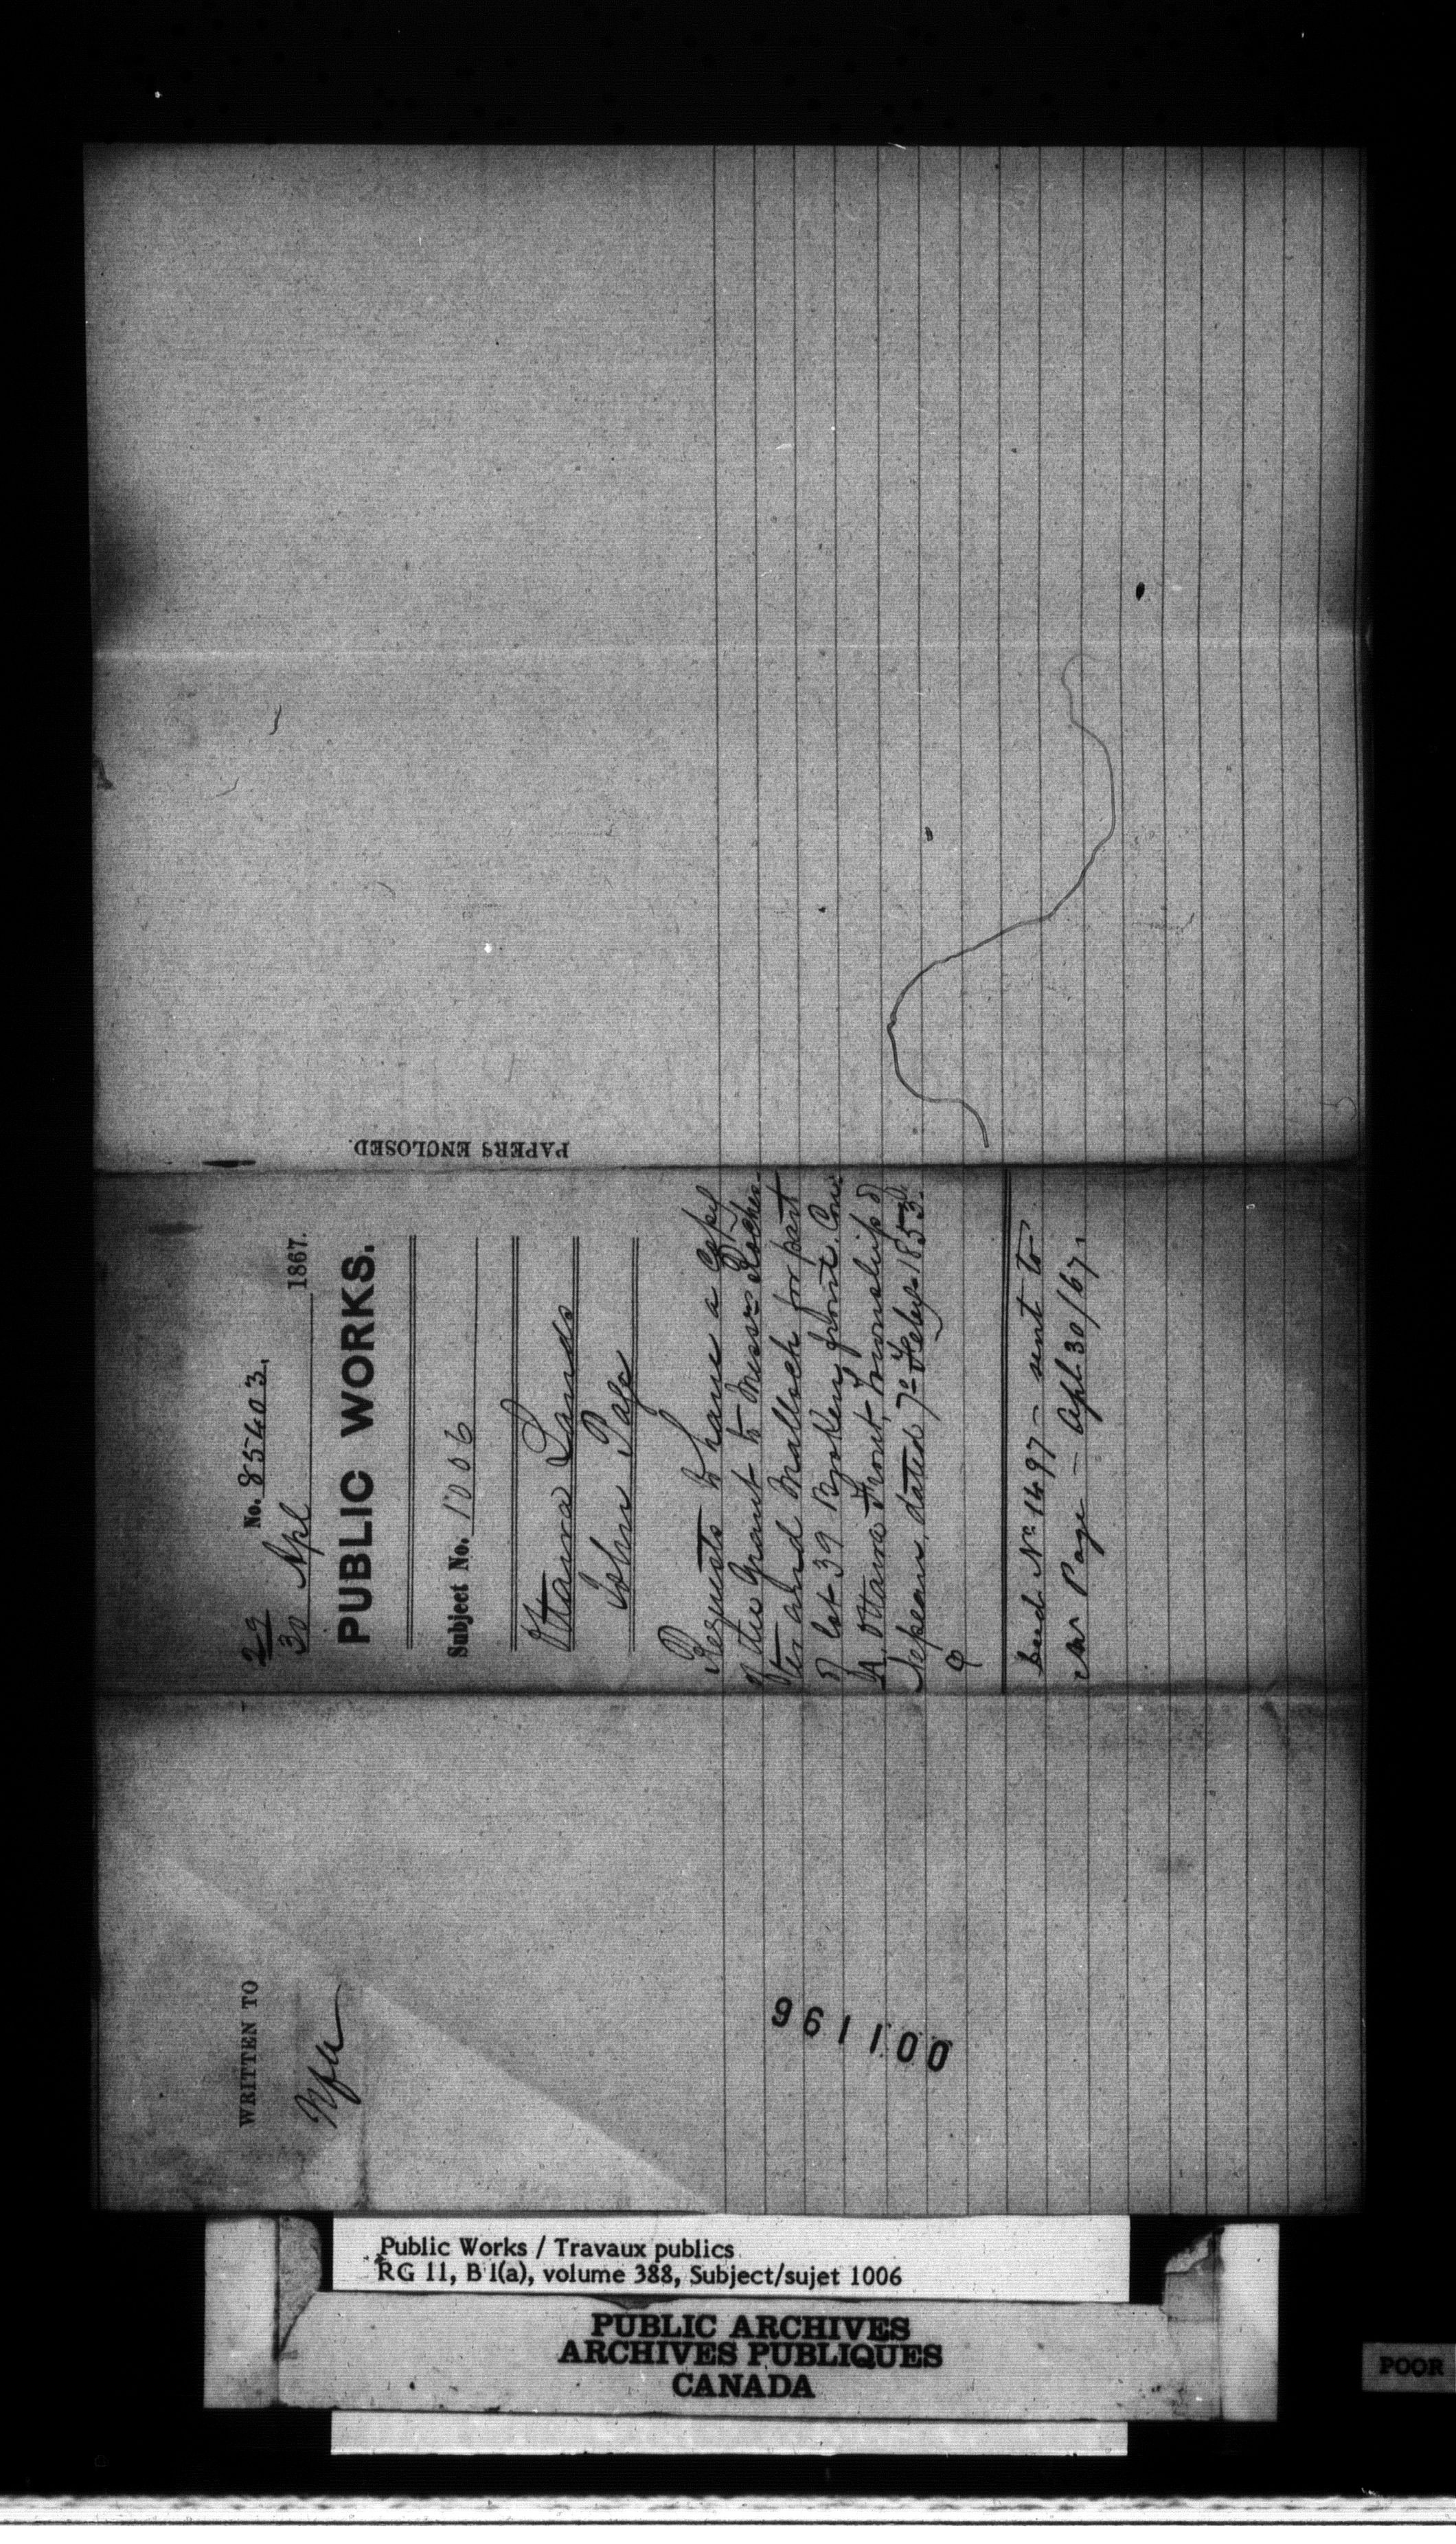 No. 85403.
29
30 Apl 1867.
PUBLIC WORKS.
Subject No. 1006
Ottawa Lands
John Page
Requests to have a Copy
of the Grant to Messrs Roches-
ter and Malloch for part
of lot 39 Broken front. Con:
A. Ottawa Front, Township of
Nepean, dated 7th Feby 1853.
Encd. No. 1497 — sent to
Mr Page — Apl. 30/67.
PAPERS ENCLOSED.
WRITTEN TO
961100
Public Works / Travaux publics
RG 11, B 1(a), volume 388, Subject/sujet 1006
PUBLIC ARCHIVES
ARCHIVES PUBLIQUES
CANADA
POOR